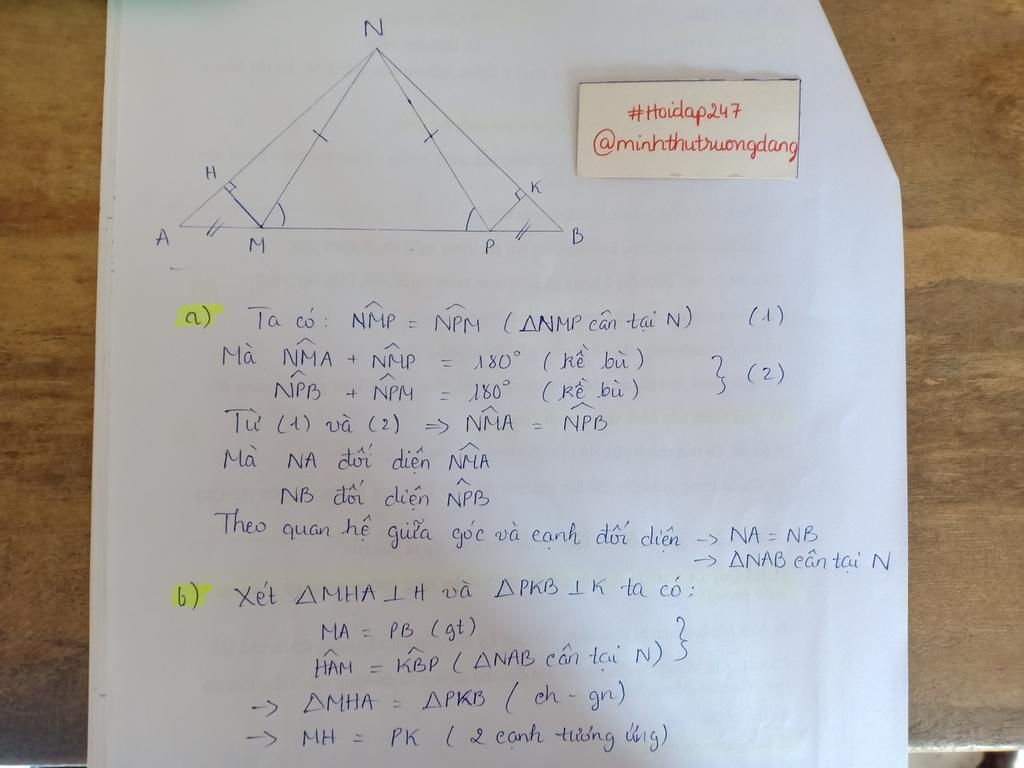 N
#Hoidap247
@minhthutruongdang
H
K
A
M
P
B
a) Ta có: NM̂P = NP̂M (ΔNMP cân tại N) (1)
Mà NM̂A + NM̂P = 180° (kề bù)
NP̂B + NP̂M = 180° (kề bù) } (2)
Từ (1) và (2) ⇒ NM̂A = NP̂B
Mà NA đối diện NM̂A
NB đối diện NP̂B
Theo quan hệ giữa góc và cạnh đối diện → NA = NB
→ ΔNAB cân tại N
b) Xét ΔMHA ⊥ H và ΔPKB ⊥ K ta có:
MA = PB (gt)
HÂM = KB̂P (ΔNAB cân tại N) }
→ ΔMHA = ΔPKB (ch - gn)
→ MH = PK (2 cạnh tương ứng)